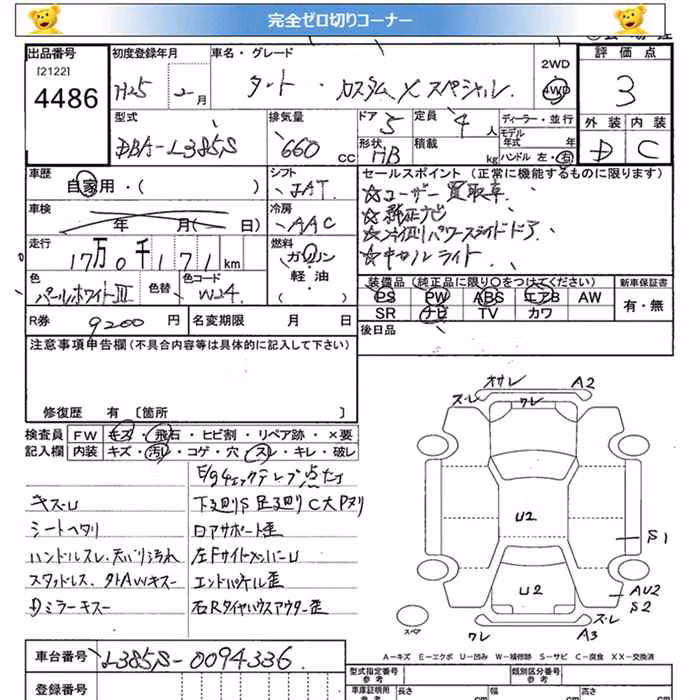 完全ゼロ切りコーナー
出品番号 初度登録年月 車名・グレード 2WD 評価点
[2122] H25年 2月 タント・カスタム X スペシャル 4WD 3
4486
型式 排気量 ドア 定員 ディーラー・並行 外装 内装
DBA-L385S 660cc 5 4人 モデル年式 年 D C
形状 HB 積載 kg ハンドル 左・右
車歴 シフト セールスポイント (正常に機能するものに限ります)
自家用・( ) IAT ☆ユーザー買取車
車検 年 月( 日) 冷房 AAC ☆純正ナビ
走行 17万0千171km 燃料 ガソリン・軽油・( ) ☆片側パワースライドドア
☆キセルライト
色 色替 色コード 装備品 (純正品に限り○をつけてください) 新車保証書
パールホワイトIII W24 PS PW ABS エアB AW 有・無
R券 9200円 名変期限 月 日 SR ナビ TV カワ
後日品
注意事項申告欄(不具合内容等は具体的に記入して下さい)
修復歴 有 〔箇所 〕
検査員 FW キズ・飛石・ヒビ割・リペア跡・×要
記入欄 内装 キズ・汚レ・コゲ・穴・スレ・キレ・破レ
E/gチェックランプ点灯
キズU 下廻りS 足廻りC大Pヌリ
シートヘタリ コアサポート歪
ハンドルスレ、天バリ汚れ 左FサイドメンバーU
スタッドレス、外AWキズー エンドパネル歪
Dミラーキズー 右Rタイヤハウスアウター歪
オサレ A2
ズレ ワレ
U2
S1
U2 AU2
S2
スペア ズレ
ワレ A3
A−キズ E−エクボ U−凹み W−補修跡 S−サビ C−腐食 XX−交換済
車台番号 L385S-0094336
型式指定番号 参考 類別区分番号 参考
登録番号 車庫証明用 参考 長さ cm 幅 cm 高さ cm